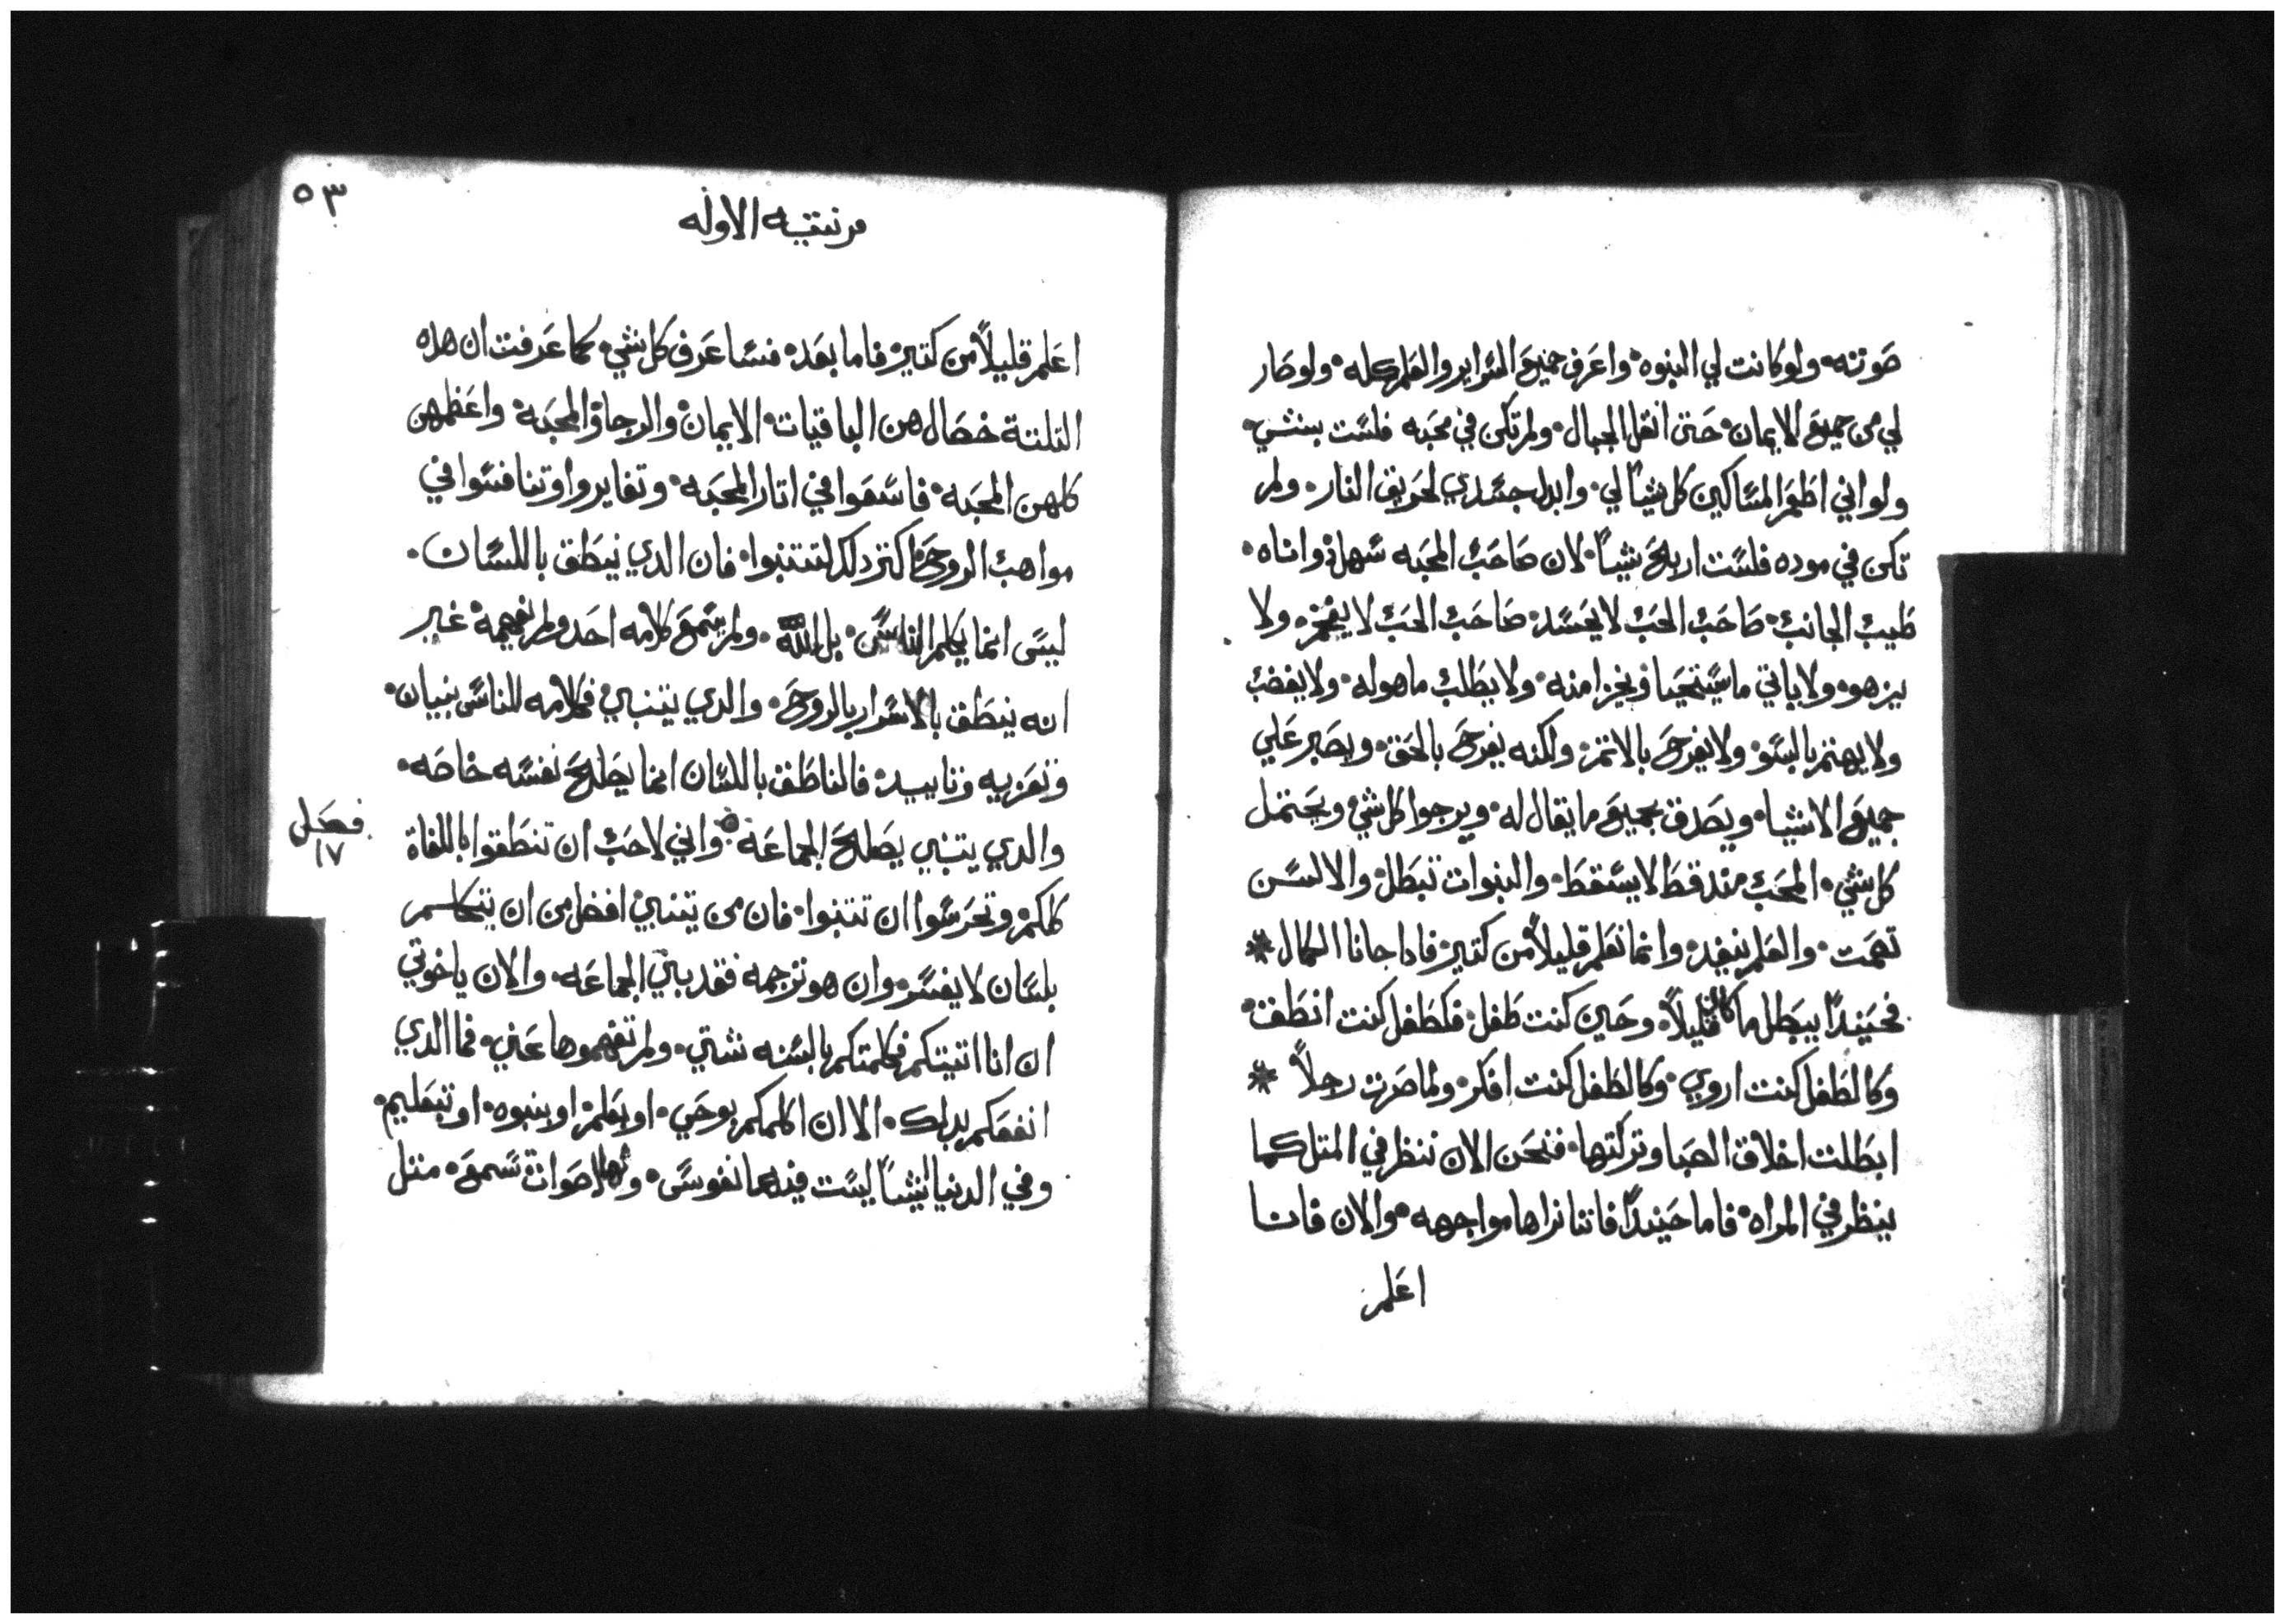 صَوتته ولو كانت لي النبوه واعَرف جميعَ السَراير والعَلم كله ولو صَار
لي من جميعَ الايمان حَتى انقل الجبال ولم تكن في محَبه فلسَت بشي
ولو اني اطَعَم المسَاكين كل شيا لي وابدل جسَدي لحَريق النار ولم
تكن في موده فلسَت اربحَ شيا لان صَاحَب المحَبه سَهلة واناه
طَيب الجانب صَاحَب الحَب لا يحَسَد صَاحَب الحَب لا يفخر ولا
يزهو ولا ياتي ما يسَتحَيا ويخزا منه ولا يطَلب ما هو له ولا يغضب
ولا يهتم بالسَو ولا يفرحَ بالاتم ولكنه يفرحَ بالحَق ويصَبر عَلي
جميعَ الاشيا ويصَدق بجميعَ ما يقال له ويرجوا كل شي ويحَتمل
كل شي المحَب مند قطَ لا يسَقطَ والنبوات تبطَل والالسَن
تصَمت والعَلم ينفد وانما نعَلم قليلاً من كتير فادا جانا الكمال
فحَينداً يبطَل ما كان قليلاً وحَين كنت طَفل فكطَفل كنت انطَق
وكالطَفل كنت اروي وكالطَفل كنت افكر ولما صَرت رجلاً
ابطَلت اخلاق الصَبا وتركتها فنحَن الان ننظر في المتل كما
ينظر في المراه فاما حَينداً فاننا نراها مواجهه والان فانا
اعَلم
٥٣
الاوله
اعَلم قليلاً من كتير فاما بعَد فسَاعَرف كل شي كما عَرفت ان هده
التلتة خصَال هن الباقيات الايمان والرجا والمحَبة واعَظمهن
كلهن المحَبه فاسَعَوا في اتار المحَبه وتغايروا وتنافسَوا في
مواهب الروحَ اكتر دلك لتتنبوا فان الدي ينطَق باللسَان
ليسَ انما يكلم الناسَ بل الله ولم يسَمعَ كلامه احَد ولم يفهمه غير
انه ينطَق بالاسَرار بالروحَ والدي يتنبي فكلامه للناسَ بنيان
وتعَزيه وتاييد فالناطَق باللسَان انما يصَلحَ نفسَه خاصَه
والدي يتنبي يصَلحَ الجماعَه واني لاحَب ان تنطَقوا باللغاة
فصَل
١٧
كلكم وتحَرسَوا ان تتنبوا فان من يتنبي افضل من ان يتكلم
بلسَان لا يفسَر وان هو ترجمه فقد بني الجماعَه والان ياخوتي
ان انا اتيتكم فكلمتكم بالسَنه شتي ولم تفهموها عَني فما الدي
انفعَكم بدلك الا ان اكلمكم بوحَي او بعَلم او بنبوه او بتعَليم
وفي الدنيا اشيا ليسَت فيها نفوسَ ولها اصَوات تسَمعَ متل